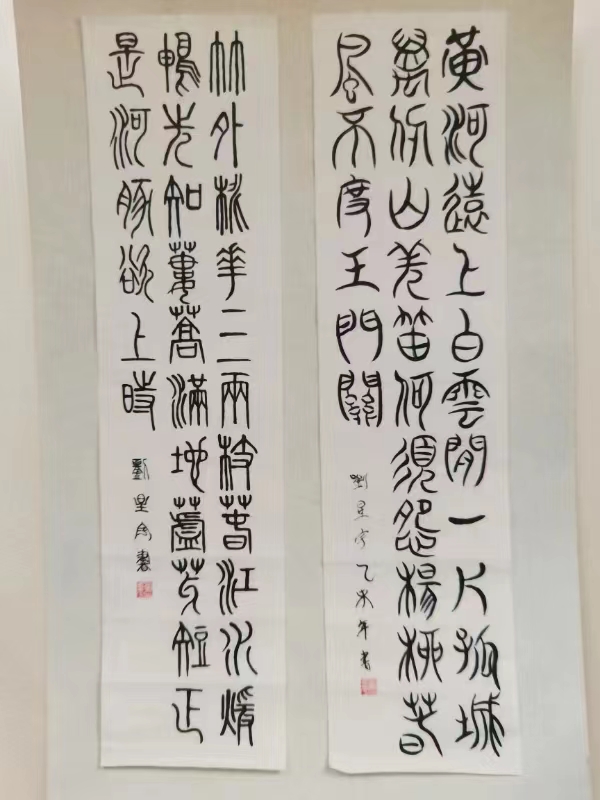 黄河遠上白雲閒一片孤城
萬仞山羌笛何須怨楊柳春
風不度玉門關
劉星宇乙未年書
竹外桃花三兩枝春江水煖
鴨先知蔞蒿滿地蘆芽短正
是河豚欲上時
劉星宇書